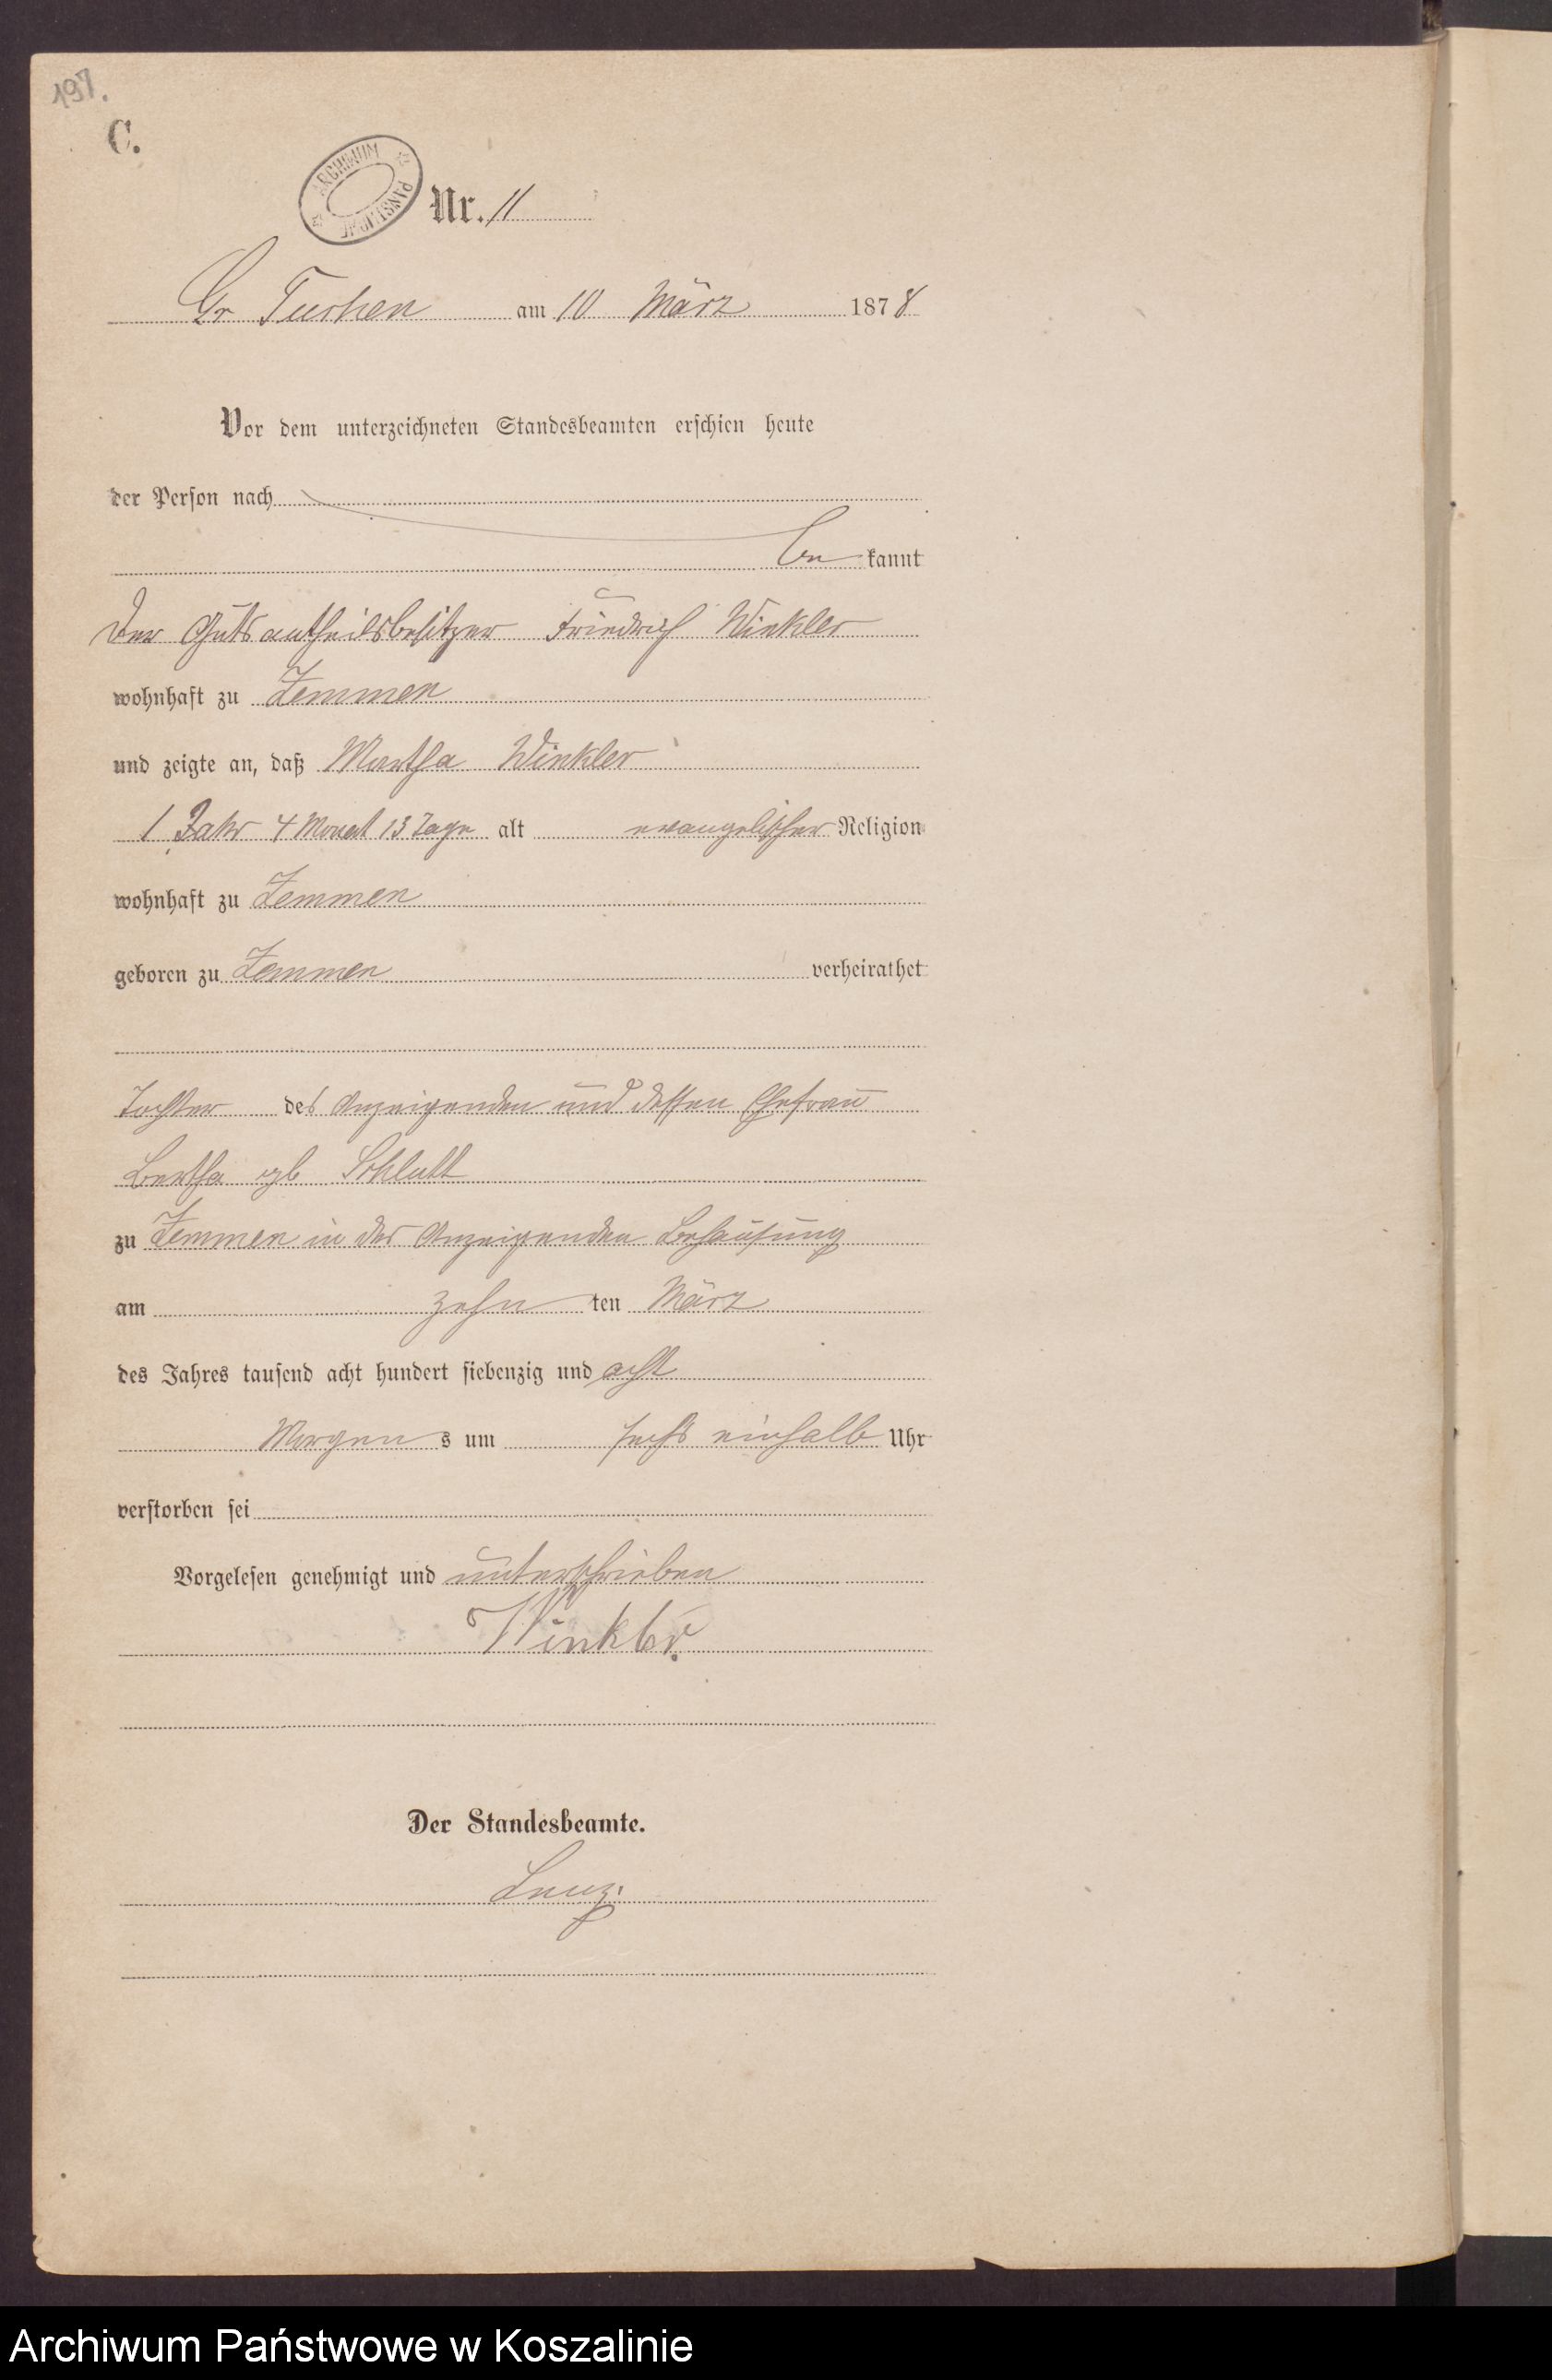 197.
C.
ARCHIWUM PAŃSTWOWE
Nr. 11
Gr Tuchen am 10 März 1878
Vor dem unterzeichneten Standesbeamten erschien heute
der Person nach
be kannt
Der Gutsantheilsbesitzer Friedrich Winkler
wohnhaft zu Zemmen
und zeigte an, daß Martha Winkler
1 Jahr 4 Monat 13 Tage alt evangelischer Religion
wohnhaft zu Zemmen
geboren zu Zemmen verheirathet
Tochter des Anzeigenden und dessen Ehefrau
Bertha geb Schlutt
zu Zemmen in des Anzeigenden Behausung
am zehn ten März
des Jahres tausend acht hundert siebenzig und acht
Morgen s um sechs einhalb Uhr
verstorben sei
Vorgelesen genehmigt und unterschrieben
Winkler
Der Standesbeamte.
Archiwum Państwowe w Koszalinie